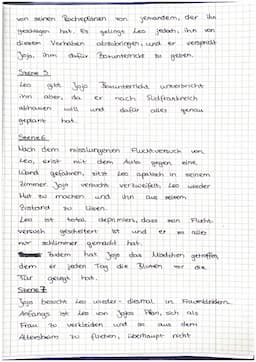 von seinen Racheplänen von jemandem, der ihn
geschlagen hat. Es gelingt Leo jedoch, ihn von
diesem Vorhaben abzubringen, und er verspricht
Jojo, ihm dafür Boxunterricht zu geben.
Szene 5
Leo gibt Jojo Boxunterricht unterbricht
ihn aber, da er nach Südfrankreich
abhauen will und dafür alles genau
geplant hat.
Szene 6
Nach dem misslungenen Fluchtversuch von
Leo, erist mit dem Auto gegen eine
Wand gefahren, sitzt Leo apatisch in seinem
Zimmer. Jojo versucht verzweifelt, Leo wieder
Mut zu machen und ihn aus seinem
Zustand zu lösen.
Leo ist total deprimiert, dass sein Flucht-
versuch gescheitert ist und er es alles
nur schlimmer gemacht hat.
Zudem hat Jojo das Mädchen getroffen,
dem er jeden Tag die Blumen vor die
Tür gelegt hat.
Szene 7
Jojo besucht Leo wieder- diesmal in Frauenkleidern.
Anfangs ist Leo von Jojos Plan, sich als
Frau zu verkleiden und so aus dem
Altersheim zu fliehen, überhaupt nicht